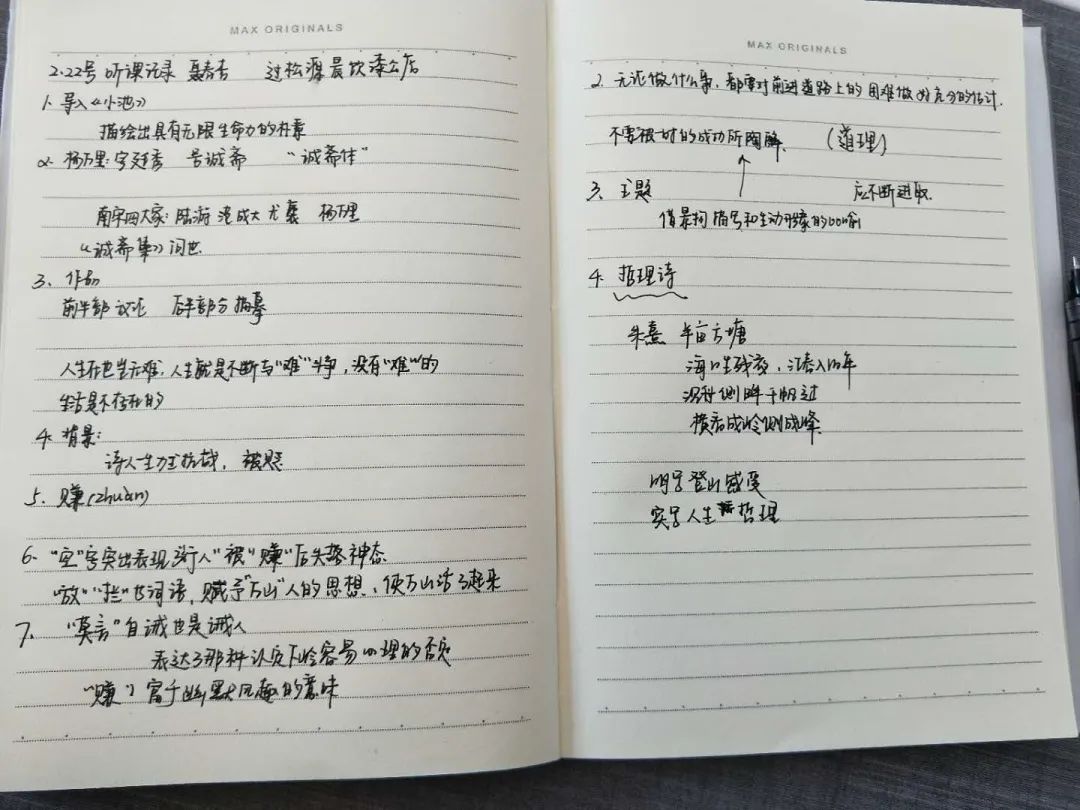 MAX ORIGINALS
2.22号 听课记录 聂青青 过松源晨炊漆公店
1. 导入《小池》
描绘出具有无限生命力的朴素
2. 杨万里:字廷秀 号诚斋 “诚斋体”
南宋四大家: 陆游 范成大 尤袤 杨万里
《诚斋集》问世
3. 作品
前半部议论 后半部分描摹
人生在世岂无难,人生就是不断与“难”斗争,没有“难”的
生活是不存在的
4. 背景:
诗人一生力主抗战,被贬
5. 赚(zhuàn)
6. “空”字突出表现了行人“被“赚”后失落神态
“放”“拦”等词语,赋予“万山”人的思想,使万山活了起来
7. “莫言”自诫也是诫人
表达了那种认定下岭容易心理的否定
“赚”富于幽默风趣的意味
MAX ORIGINALS
2. 无论做什么事,都要对前进道路上的困难做好充分的估计.
不要被一时的成功所陶醉. (道理)
3. 主题 应不断进取.
借景物描写和生动形象的比喻
4. 哲理诗
朱熹 半亩方塘
海日生残夜,江春入旧年
沉舟侧畔千帆过
横看成岭侧成峰
明写登山感受
实写人生哲理